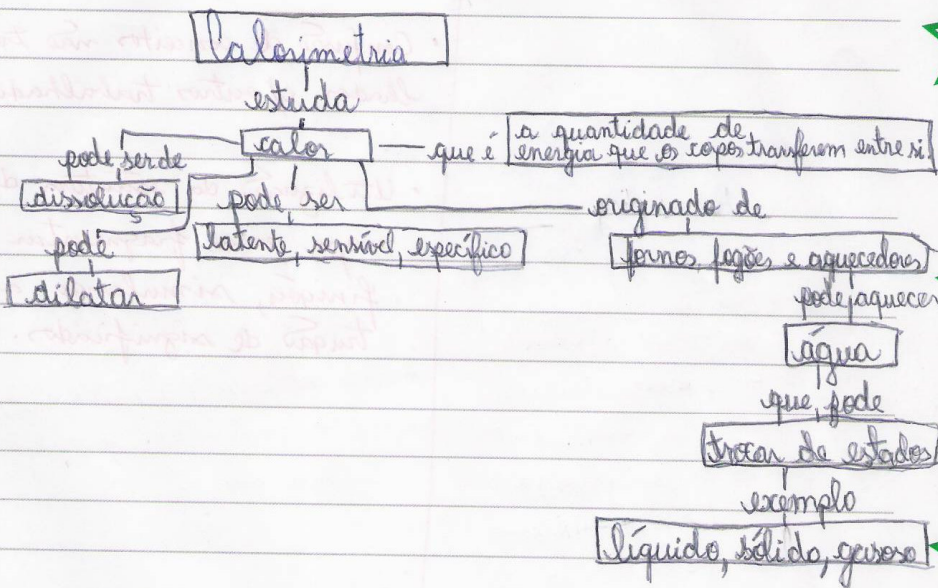 Calorimetria
estuda
calor
que é
a quantidade de
energia que os copos transferem entre si.
pode ser de
dissolução
pode
dilatar
pode ser
latente, sensível, específico
originado de
fornos, fogões e aquecedores
pode aquecer
água
que pode
trocar de estados
exemplo
líquido, sólido, gasoso